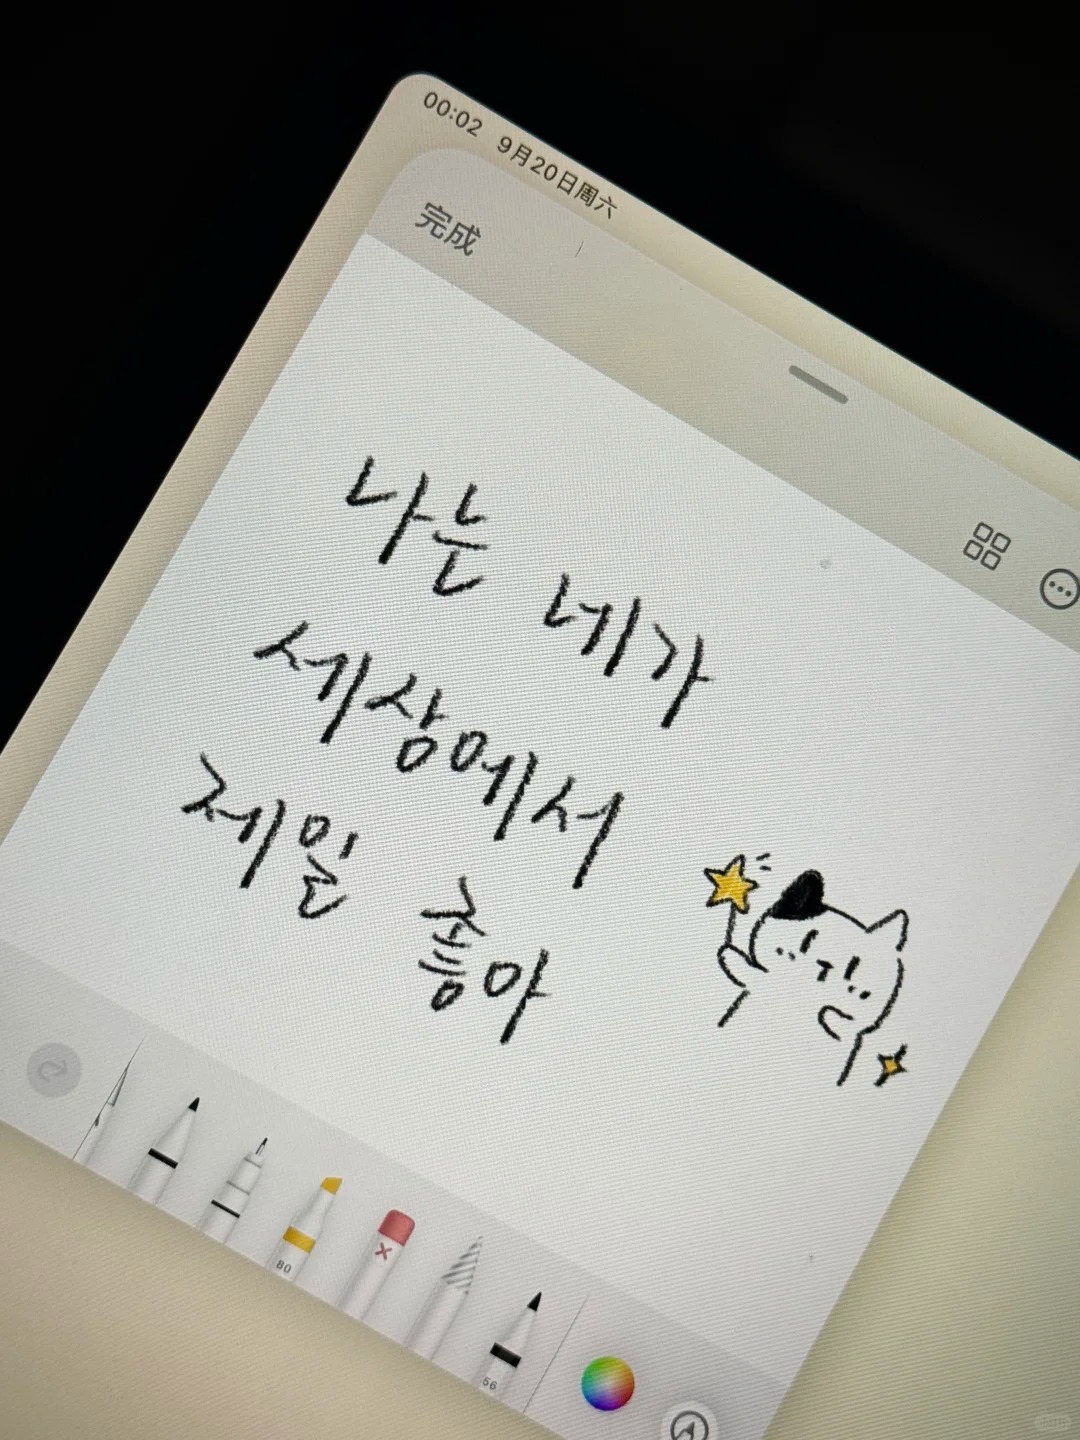 00:02 9月20日周六
完成
나는 네가
세상에서
제일 좋아
80
56